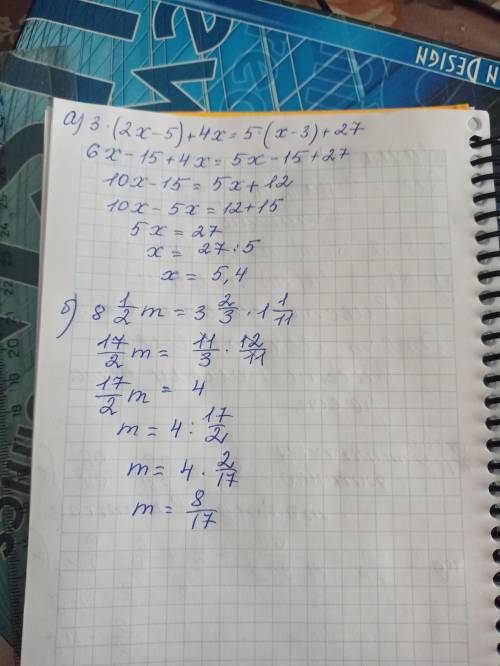 n Design
а) 3·(2x-5)+4x=5·(x-3)+27
6x-15+4x=5x-15+27
10x-15=5x+12
10x-5x=12+15
5x=27
x=27:5
x=5,4
б) 8 1/2 m = 3 2/3 · 1 1/11
17/2 m = 11/3 · 12/11
17/2 m = 4
m = 4 : 17/2
m = 4 · 2/17
m = 8/17